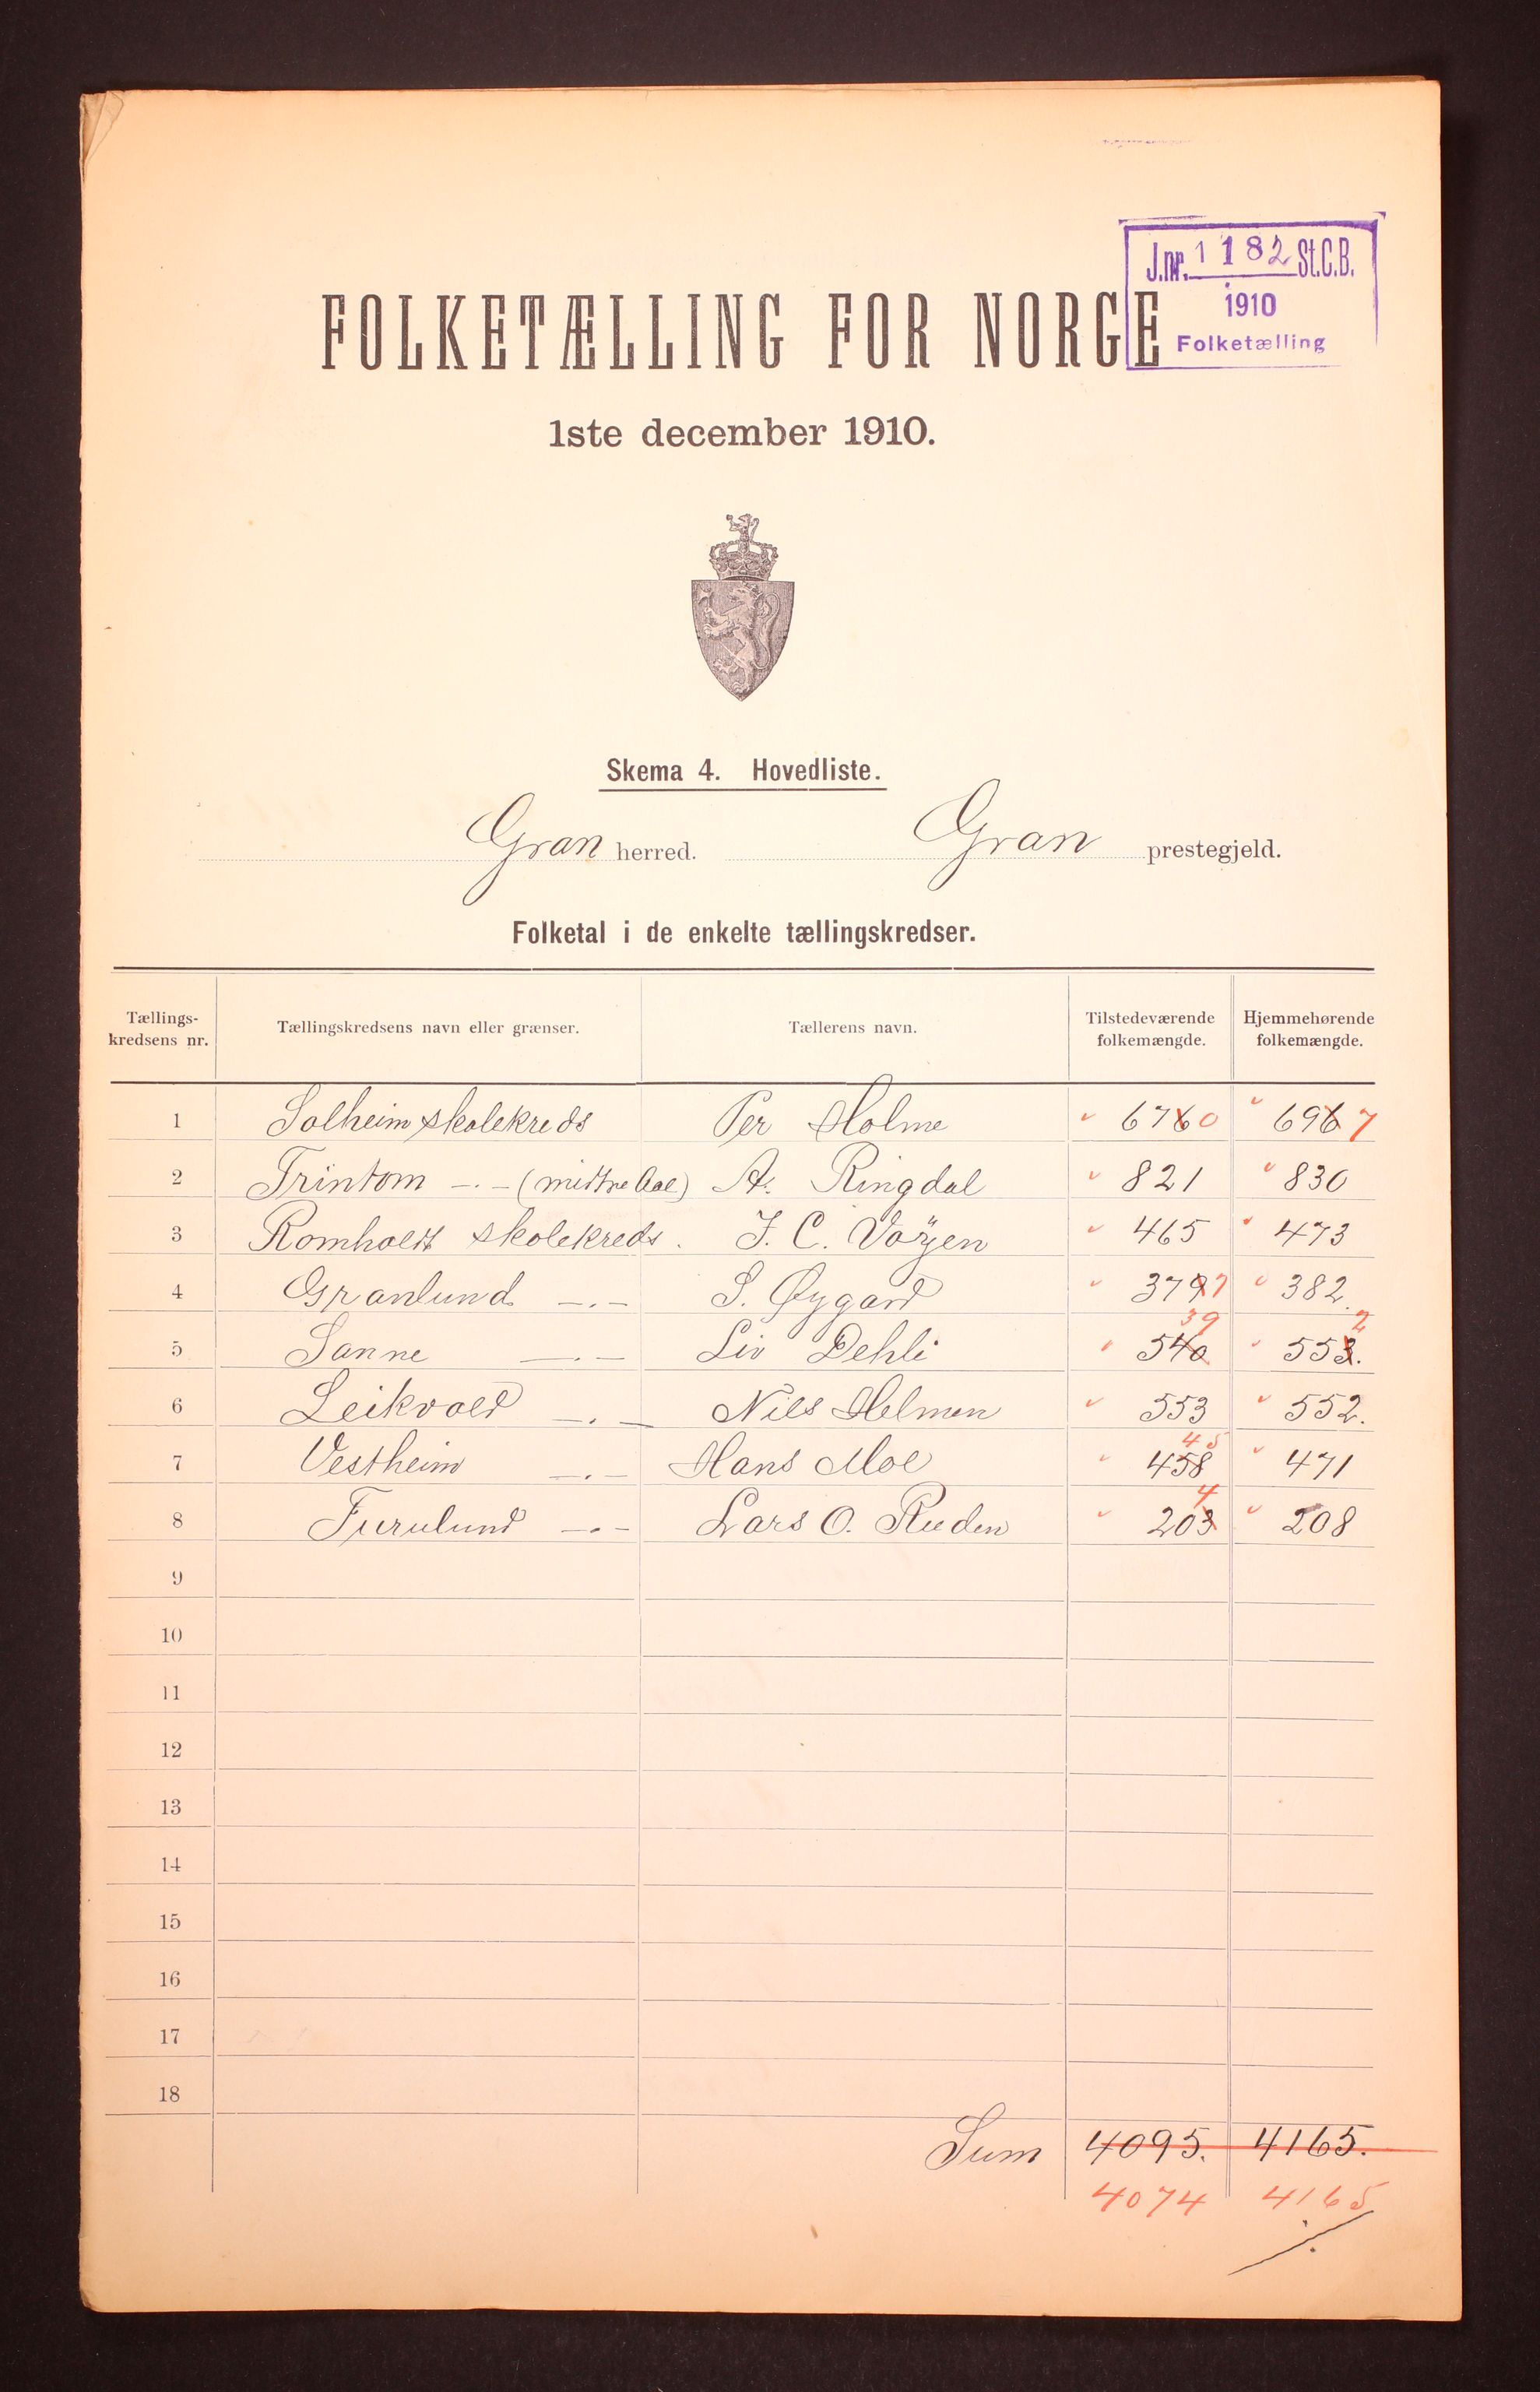 J.nr. 1182 St.C.B.
1910
Folketælling
FOLKETÆLLING FOR NORGE
1ste december 1910.
Skema 4. Hovedliste.
Gran herred. Gran prestegjeld.
Folketal i de enkelte tællingskredser.
Tællings-kredsens nr. Tællingskredsens navn eller grænser. Tællerens navn. Tilstedeværende folkemængde. Hjemmehørende folkemængde.
1 Solheim skolekreds Per Holme 6760 6967
2 Trintom -.- (midtre Aal) A. Ringdal 821 830
3 Romholdt skolekreds. J. C. Vøyen 465 473
4 Granlund -.- S. Øygard 3797 382.
39 2
5 Sanne -.- Liv Dehli 540 553.
6 Leikvold -.- Nils Helmen 553 552.
45
7 Vestheim -.- Hans Moe 458 471
4
8 Furulund -.- Lars O. Ruden 203 208
9
10
11
12
13
14
15
16
17
18
Sum 4095. 4165.
4074 4165